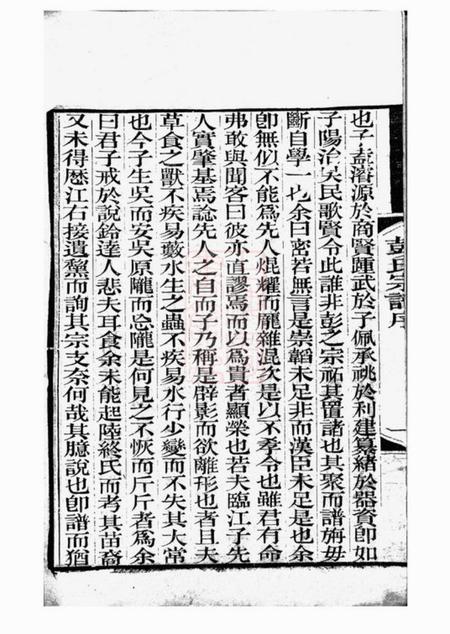 也子盍濬源於商賢踵武於子佩承祧於利建纂緒於器資即如
子陽治吳民歌賢令此誰非彭之宗祏其置諸也其聚而譜旃毋
斷自學一也余曰密若無言是崇韜未足非而漢臣未足是也余
即無似不能爲先人焜耀而厖雜混次是以不季令也雖君有命
弗敢與聞客曰彼亦直謬焉而以爲貴者顯榮也若夫臨江子先
人實肇基焉諗先人之自而子乃稱是辟影而欲離形也者且夫
草食之獸不疾易藪水生之蟲不疾易水行少變而不失其大常
也今子生吳而安吳原隴而忘隴是何見之不恢而斤斤者爲余
曰君子戒於說鈴達人悲夫耳食余未能起陸終氏而考其苗裔
又未得歴江右接遺黎而詢其宗支奈何哉其臆說也即譜而猶
彭氏宗譜序